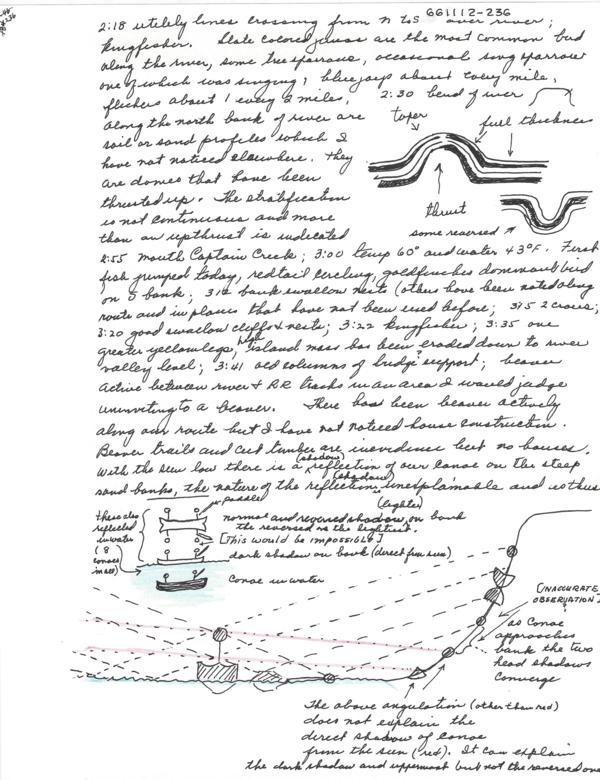 661112-236
2:18 utility lines crossing from N to S over river;
kingfisher. Slate colored juncos are the most common bird
along the river, some tree sparrows, occasional song sparrow
one of which was singing; bluejays about every mile,
flickers about 1 every 2 miles, 2:30 bend of river
along the north bank of river are
soil or sand profiles which I
have not noticed elsewhere. They
are domes that have been
thrusted up. The stratification
is not continuous and more
than an upthrust is indicated
taper
full thickness
thrust
some reversed
2:55 mouth Captain Creek; 3:00 temp 60° and water 43°F. First
fish jumped today, redtail circling, goldfinches dominant bird
on S bank; 312 bank swallow nests (others have been noted along
route and in places that have not been used before; 315 2 crows;
3:20 good swallow cliffs & nests; 3:22 kingfisher; 3:35 one
greater yellowlegs; high island mass has been eroded down to river
valley level; 3:41 old columns of bridge? support; beaver
active between river & RR tracks in an area I would judge
uninviting to a beaver. There has been beaver activity
along our route but I have not noticed house construction.
Beaver trails and cut timber are in evidence but no houses.
With the sun low there is a (shadow) reflection of our canoe on the steep
sand banks, the nature of the reflection (shadow) is unexplainable and is thus
paddle
these also
reflected
in water
(8
canoes
in all)
(lighter)
normal and reversed shadow on bank
the reversed is the lightest.
[This would be impossible]
dark shadow on bank (direct from sun)
Canoe in water
[INACCURATE
OBSERVATION]
as canoe
approaches
bank the two
head shadows
converge
The above angulation (other than red)
does not explain the
direct shadow of canoe
from the sun (red). It can explain
the dark shadow and uppermost but not the reversed one